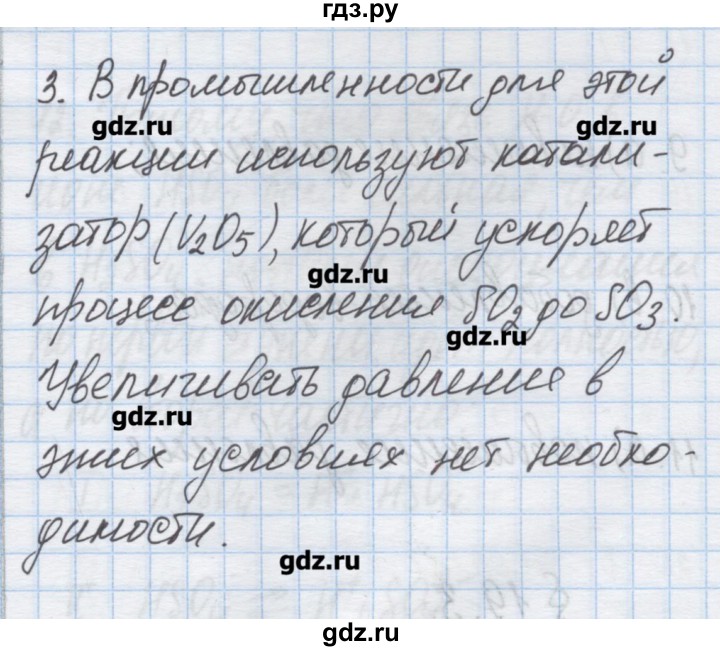 гдз.ру
3. В промышленности для этой
gdz.ru
gdz.ru
реакции используют катали-
затор (V₂O₅), который ускоряет
gdz.ru
процесс окисления SO₂ до SO₃.
gdz.ru
Увеличивать давление в
gdz.ru
этих условиях нет необхо-
димости.
gdz.ru
gdz.ru